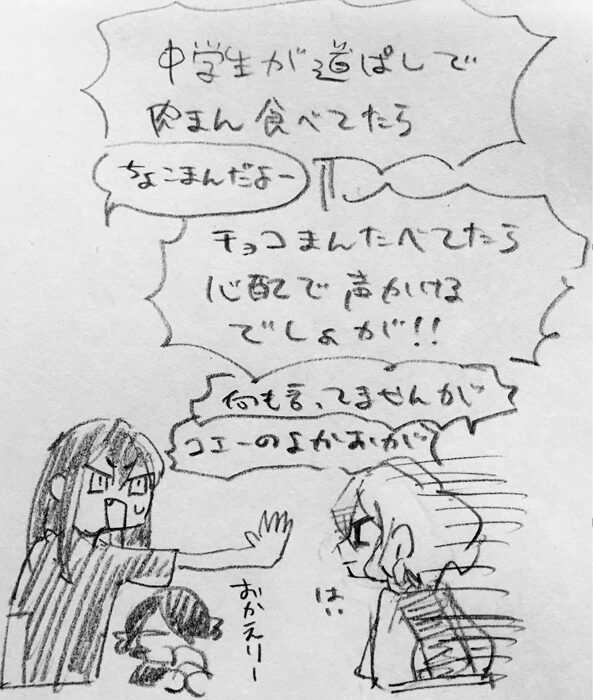 中学生が道ばしで
肉まん食べてたら
ちょこまんだよー
チョコまんたべてたら
心配で声かける
でしょが!!
何も言ってませんが
コエーのよかおが
おかえりー
はい